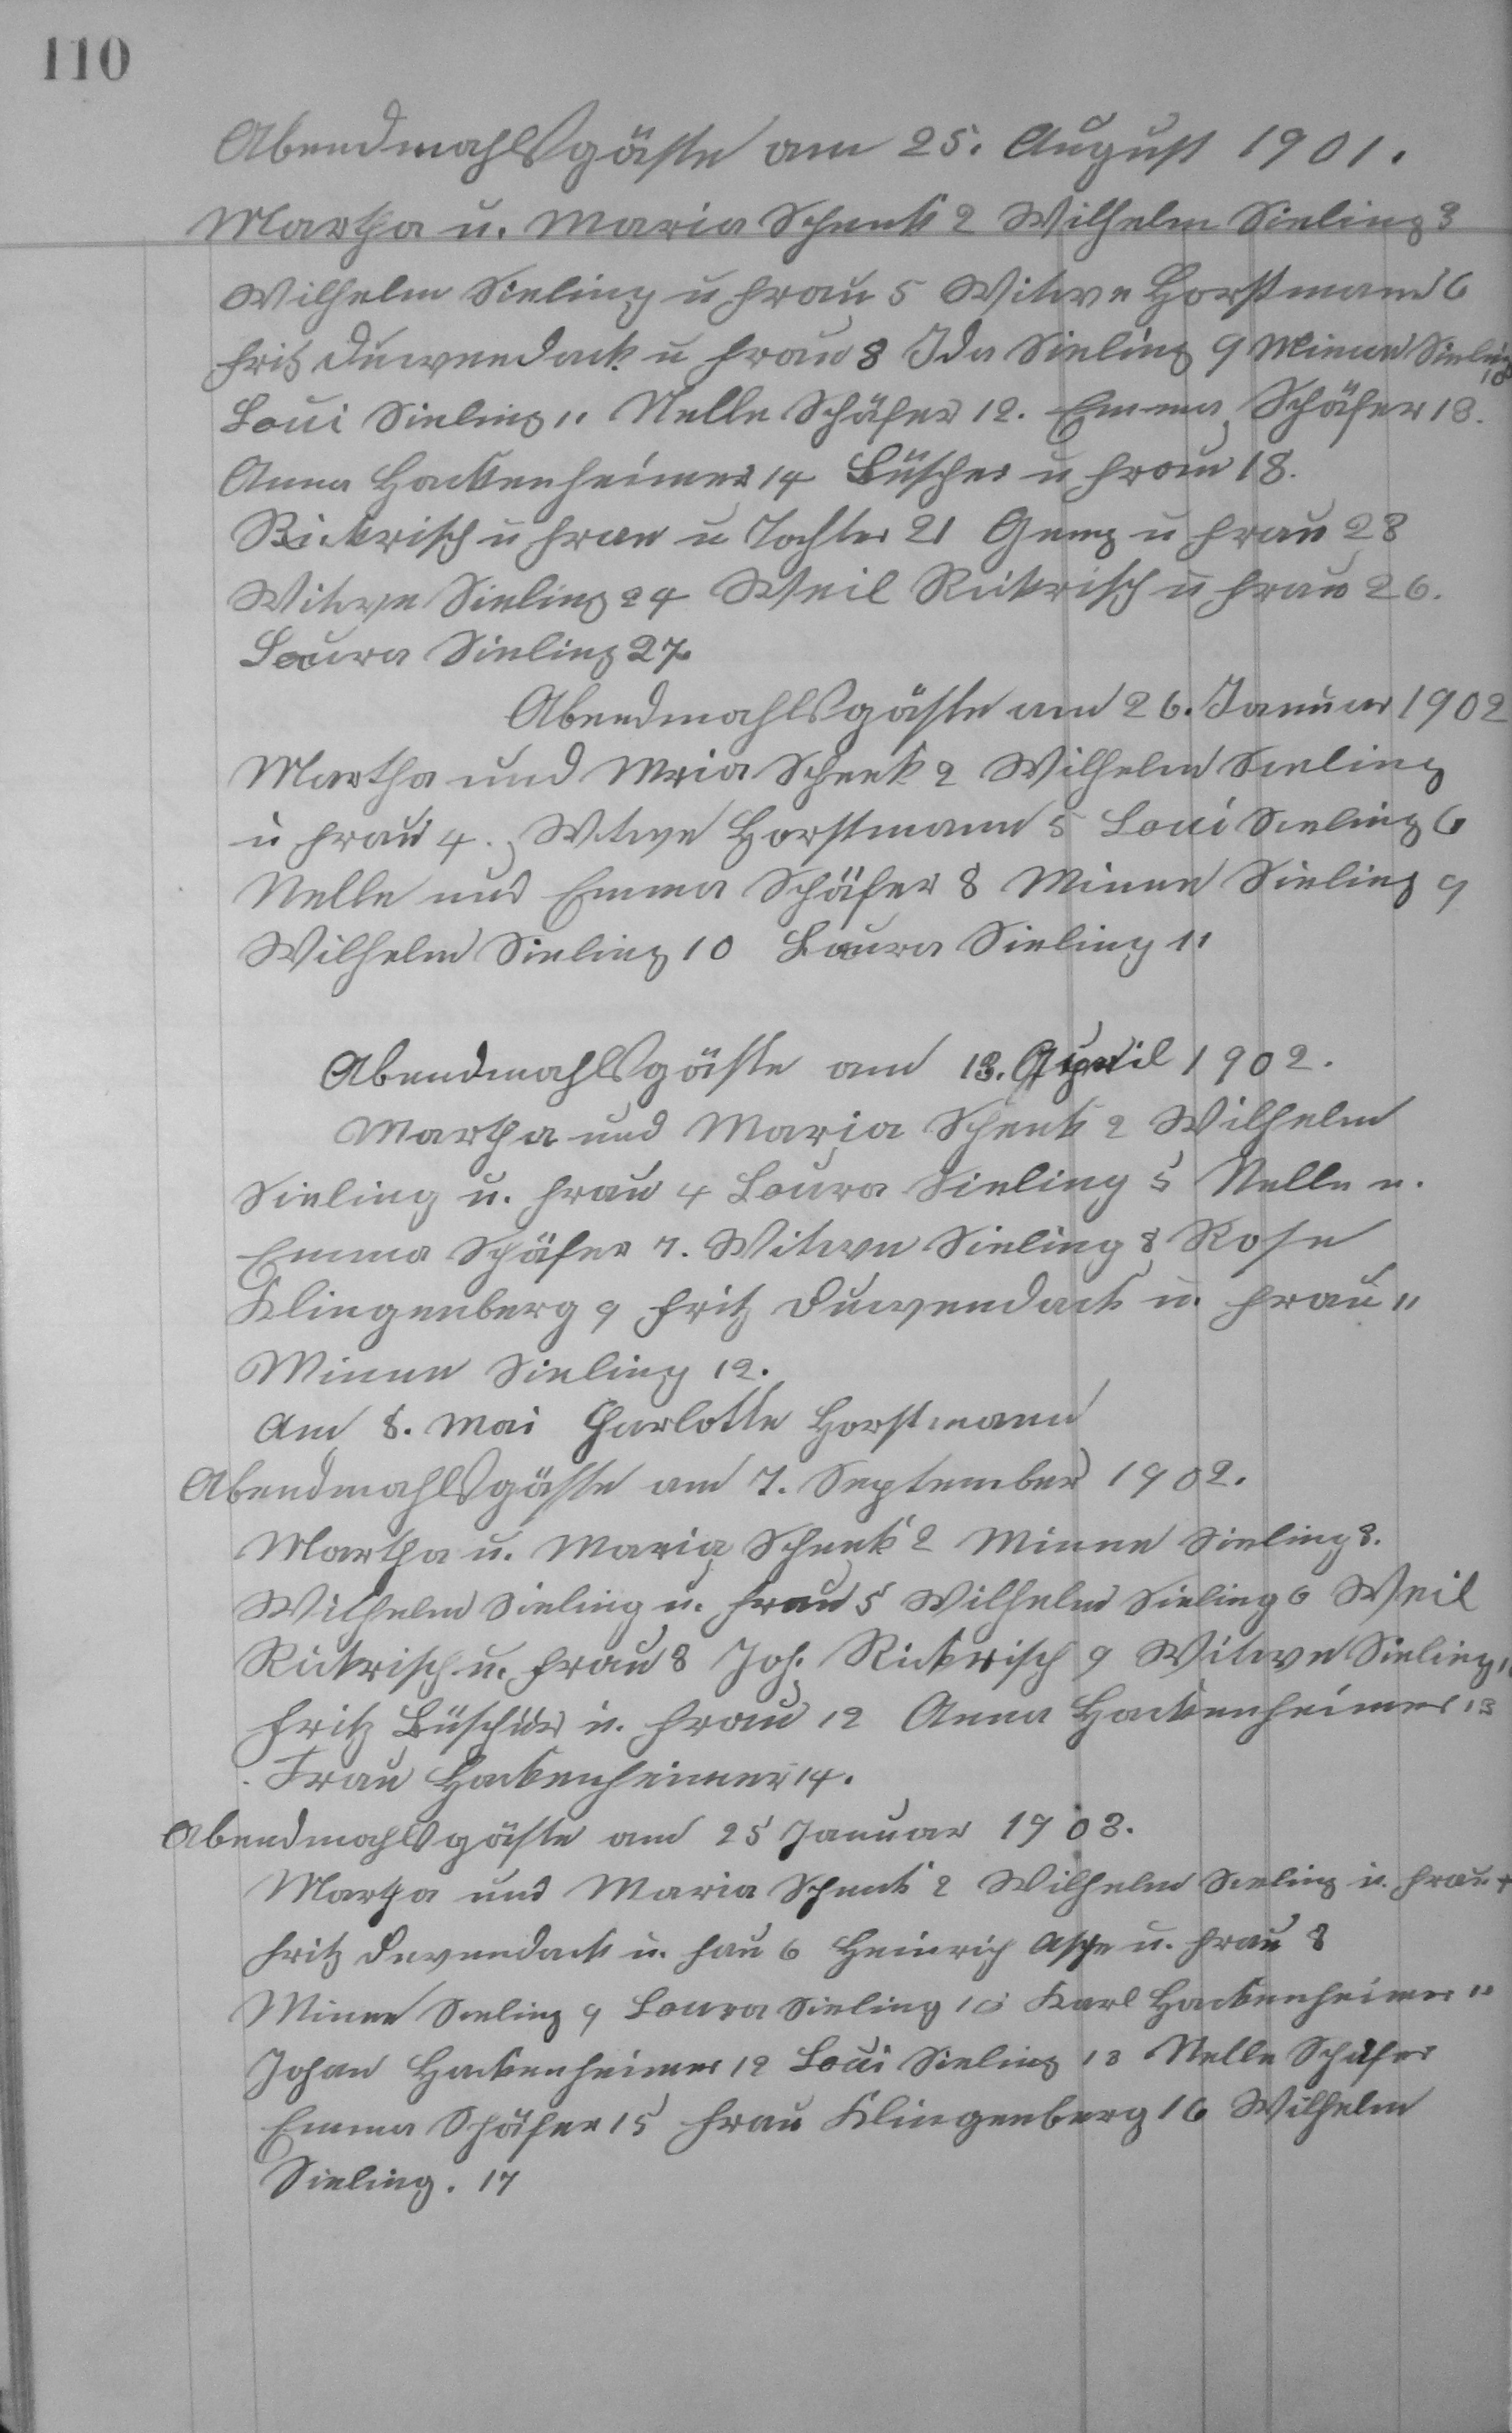 110
Abendmahlsgäste am 25. August 1901.
Martha u. Maria Schenk 2 Wilhelm Sieling 3
Wilhelm Sieling u Frau 5 Witwe Horstmann 6
Fritz Duwendack u Frau 8 Ida Sieling 9 Minna Sieling 10
Loui Sieling 11 Nelle Schäfer 12. Emma Schäfer 13.
Anna Hackenheimer 14 Büscher u Frau 18.
Rickrisch u Frau u Tochter 21 u Frau 23
Witwe Sieling 24 Weil Rickrisch u Frau 26.
Laura Sieling 27.
Abendmahlsgäste am 26. Januar 1902
Martha und Mria Schenk 2 Wilhelm Sieling
u Frau 4. Witwe Horstmann 5 Loui Sieling 6
Nelle und Emma Schäfer 8 Minne Sieling 9
Wilhelm Sieling 10 Laura Sieling 11
Abendmahlsgäste am 13. April 1902.
Martha und Maria Schenk 2 Wilhelm
Sieling u. Frau 4 Loura Sieling 5 Nelle u.
Emma Schäfer 7. Witwe Sieling 8 Rose
Klingenberg 9 Fritz Duwendack u. Frau 11
Minne Sieling 12.
Am 8. Mai Charlotte Horstmann
Abendmahlsgäste am 7. September 1902.
Martha u. Maria Schenk 2 Minne Sieling 3.
Wilhelm Sieling u. Frau 5 Wilhelm Sieling 6 Weil
Rickrisch u. Frau 8 Joh. Rickrisch 9 Witwe Sieling 10
Fritz Büscher u. Frau 12 Anna Hackenheimer 13
Frau Hackenheimer 14.
Abendmahlsgäste am 25 Januar 1903.
Martha und Maria Schenk 2 Wilhelm Sieling u. Frau 4
Fritz Duwendack u. Fau 6 Heinrich Asche u. Frau 8
Minne Sieling 9 Loura Sieling 10 Karl Hackenheimer 11
Johan Hackenheimer 12 Loui Sieling 13 Nelle Schäfer
Emma Schäfer 15 Frau Klingenberg 16 Wilhelm
Sieling. 17